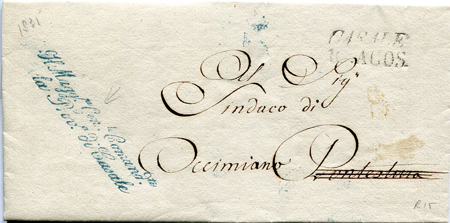 1831
CASALE
AGOS.
Il Magg.re Comand.te
la Prov. di Casale
Al Sig.r
Sindaco di
Occimiano Pontestura
R15